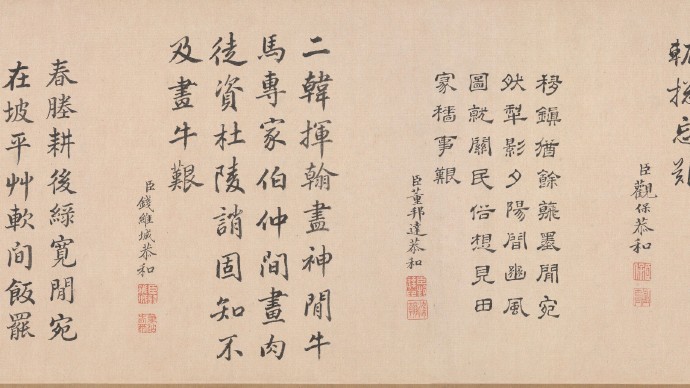 忘艱
臣觀保恭和
移鎮猶餘蘸墨閒宛
然犁影夕陽間豳風
圖就關民俗想見田
家穡事艱
臣董邦達恭和
二韓揮翰盡神閒牛
馬專家伯仲間畫肉
徒資杜陵誚固知不
及畫牛艱
臣錢維城恭和
春塍耕後綠寬閒宛
在坡平艸軟間飯罷